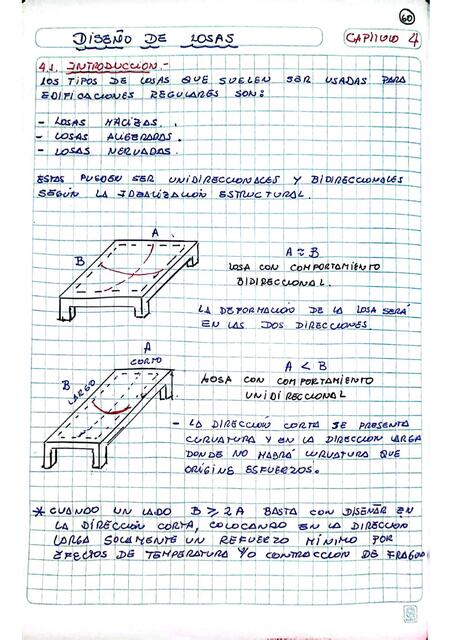 60
DISEÑO DE LOSAS
CAPITULO 4
4.1. INTRODUCCION.-
LOS TIPOS DE LOSAS QUE SUELEN SER USADAS PARA
EDIFICACIONES REGULARES SON:
- LOSAS MACIZAS.
- LOSAS ALIGERADAS.
- LOSAS NERVADAS.
ESTAS PUEDEN SER UNIDIRECCIONALES Y BIDIRECCIONALES
SEGÚN LA IDEALIZACIÓN ESTRUCTURAL.
A
B
A ≈ B
LOSA CON COMPORTAMIENTO
BIDIRECCIONAL.
LA DEFORMACIÓN DE LA LOSA SERÁ
EN LAS DOS DIRECCIONES.
A
CORTO
B
LARGO
A < B
LOSA CON COMPORTAMIENTO
UNIDIRECCIONAL
- LA DIRECCIÓN CORTA SE PRESENTA
CURVATURA Y EN LA DIRECCION LARGA
DONDE NO HABRÁ CURVATURA QUE
ORIGINE ESFUERZOS.
* CUANDO UN LADO B ≥ 2A BASTA CON DISEÑAR EN
LA DIRECCIÓN CORTA, COLOCANDO EN LA DIRECCION
LARGA SOLAMENTE UN REFUERZO MÍNIMO POR
EFECTOS DE TEMPERATURA Y/O CONTRACCIÓN DE FRAGUA